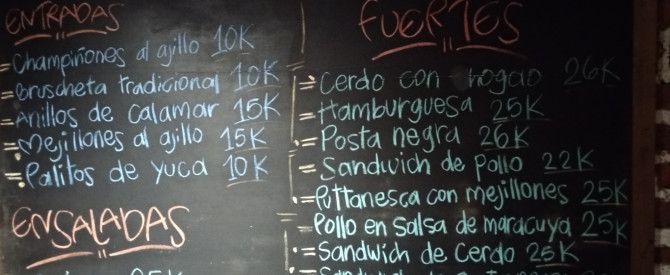 ENTRADAS
= Champiñones al ajillo 10K
= Bruscheta tradicional 10K
= Anillos de Calamar 15K
= Mejillones al ajillo 15K
= Palitos de yuca 10K
ENSALADAS
25K
FUERTES
= Cerdo con hogao 26K
= Hamburguesa 25K
= Posta negra 26K
= Sandwich de Pollo 22K
= Puttanesca con mejillones 25K
= Pollo en Salsa de maracuya 25K
= Sandwich de Cerdo 25K